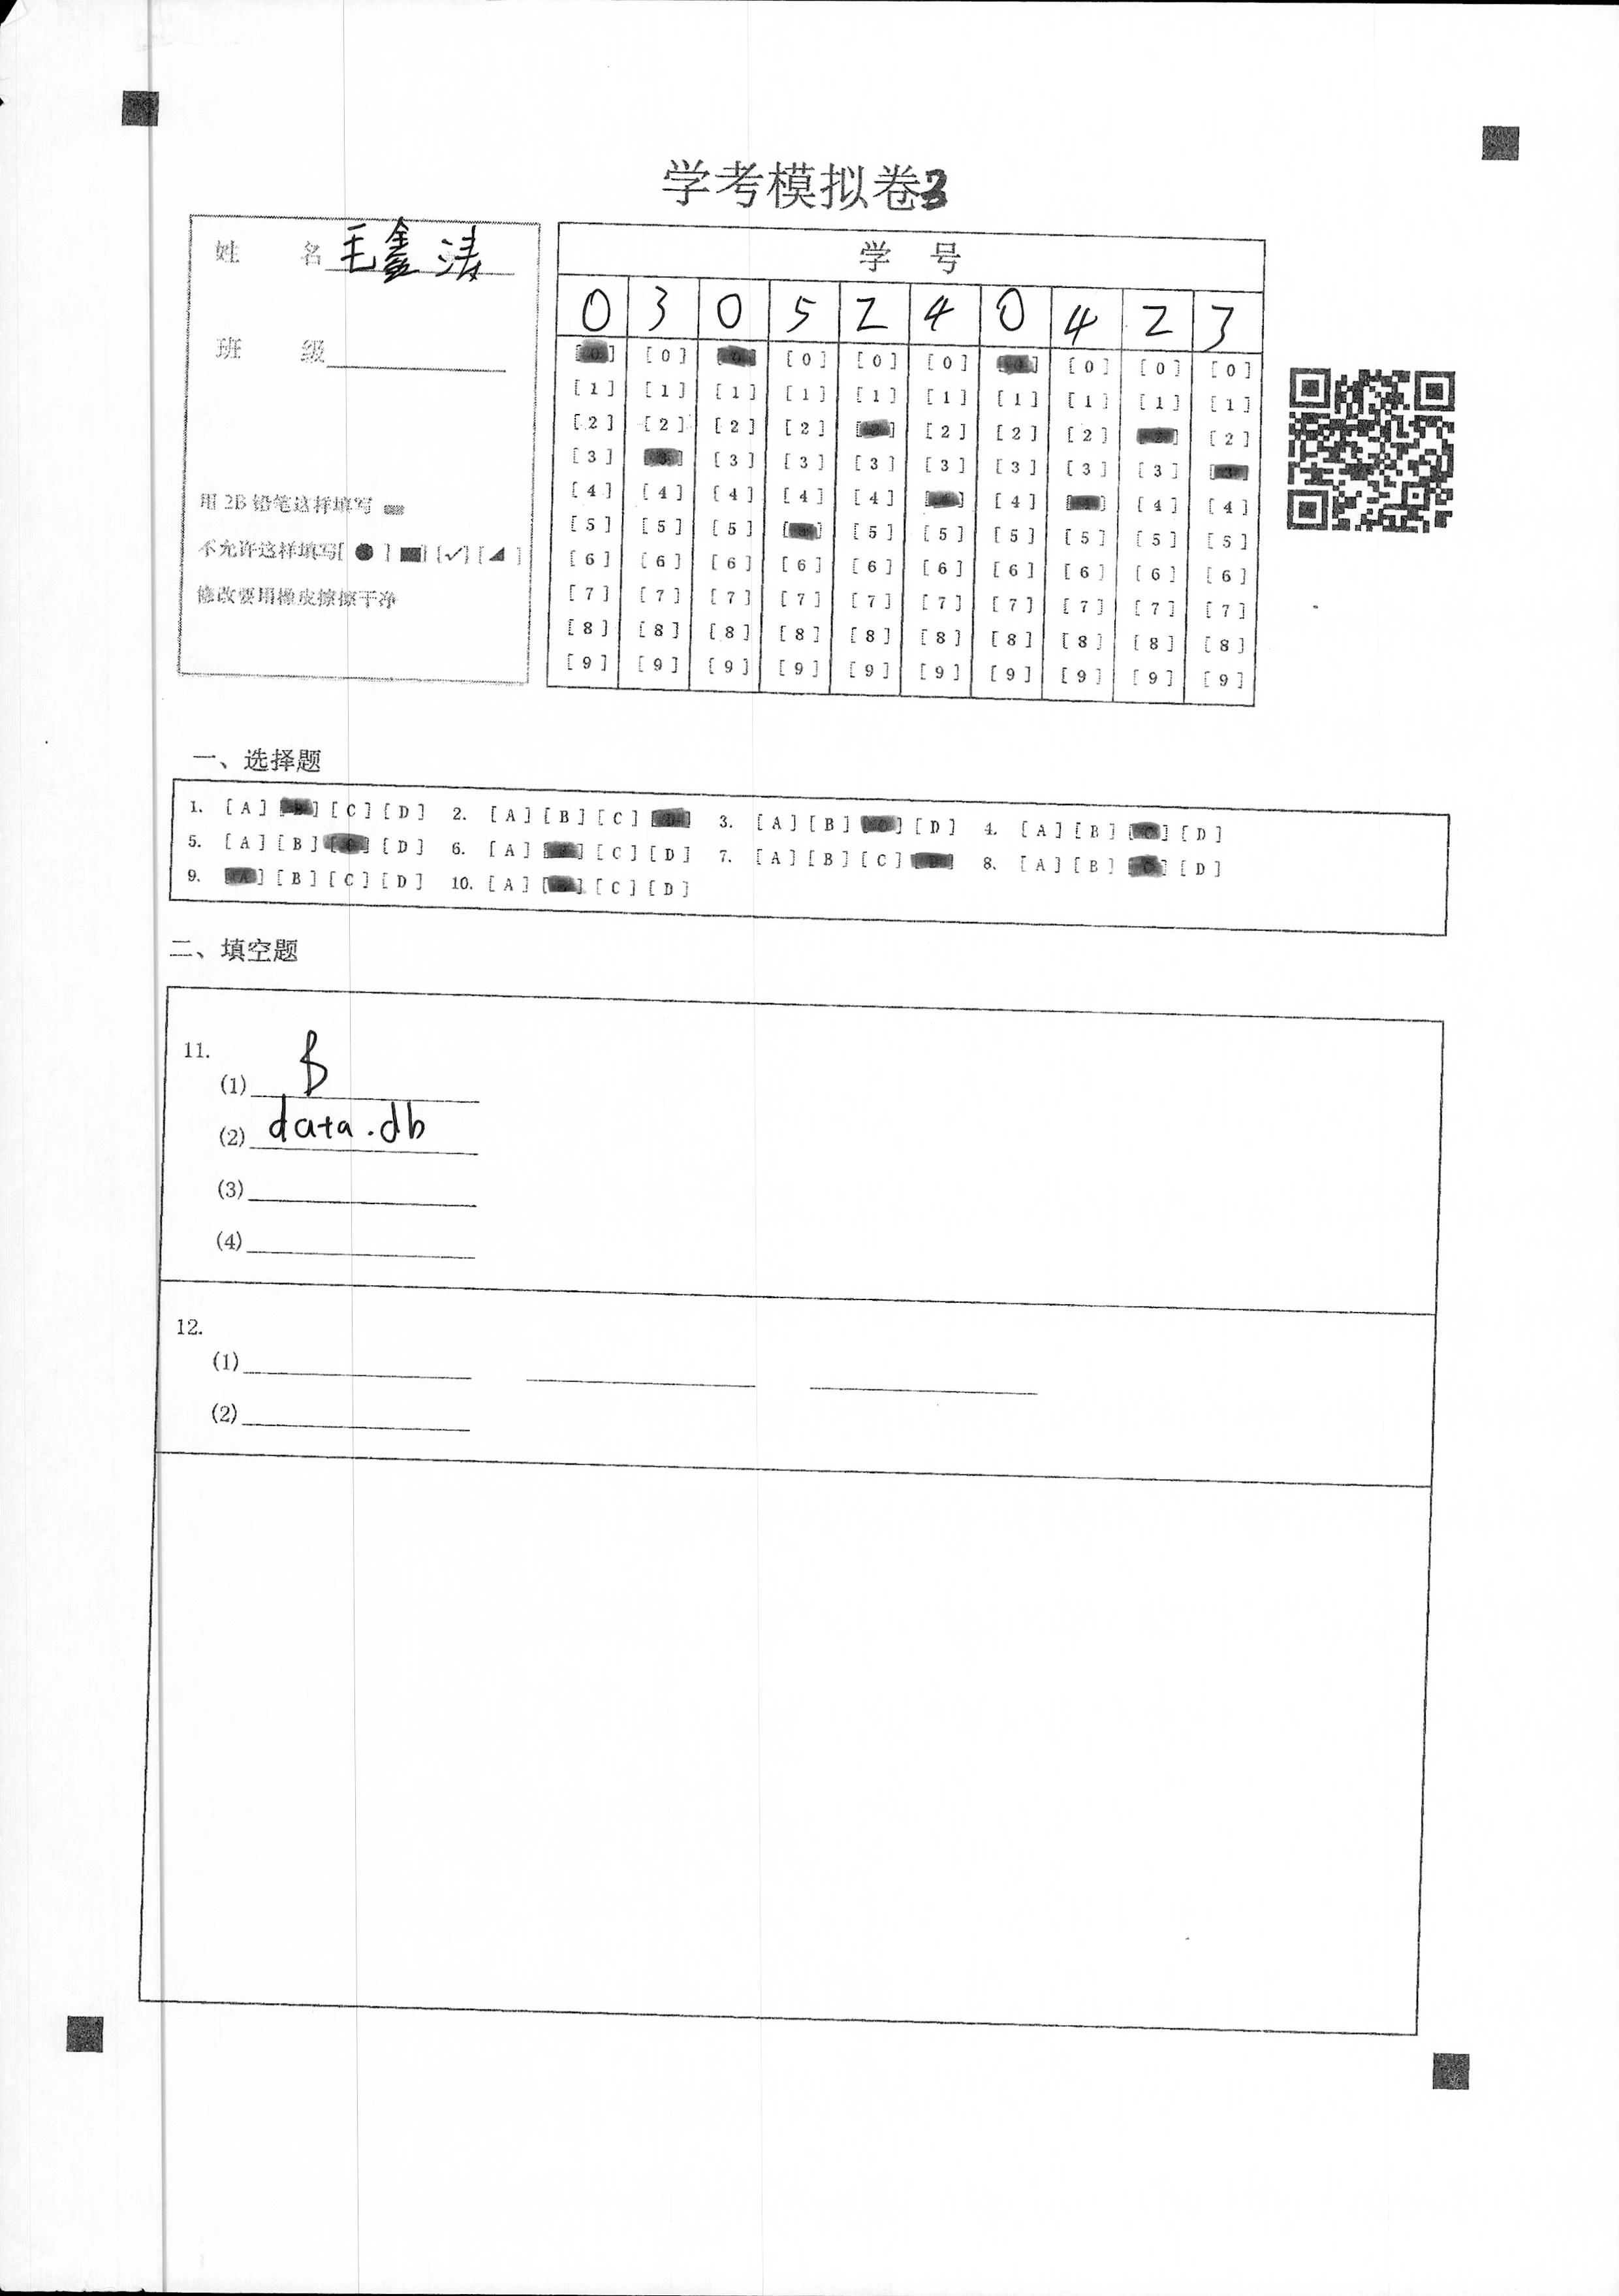 学考模拟卷3
姓 名 毛鑫涛
班 级
用 2B 铅笔这样填写
不允许这样填写[ ● ] ■] [✓] [ ◢ ]
修改要用橡皮擦擦干净
学 号
0 3 0 5 2 4 0 4 2 3
[0] [0] [0] [0] [0] [0] [0] [0] [0] [0]
[1] [1] [1] [1] [1] [1] [1] [1] [1] [1]
[2] [2] [2] [2] [2] [2] [2] [2] [2] [2]
[3] [3] [3] [3] [3] [3] [3] [3] [3] [3]
[4] [4] [4] [4] [4] [4] [4] [4] [4] [4]
[5] [5] [5] [5] [5] [5] [5] [5] [5] [5]
[6] [6] [6] [6] [6] [6] [6] [6] [6] [6]
[7] [7] [7] [7] [7] [7] [7] [7] [7] [7]
[8] [8] [8] [8] [8] [8] [8] [8] [8] [8]
[9] [9] [9] [9] [9] [9] [9] [9] [9] [9]
一、选择题
1. [A] [B] [C] [D] 2. [A] [B] [C] [D] 3. [A] [B] [C] [D] 4. [A] [B] [C] [D]
5. [A] [B] [C] [D] 6. [A] [B] [C] [D] 7. [A] [B] [C] [D] 8. [A] [B] [C] [D]
9. [A] [B] [C] [D] 10. [A] [B] [C] [D]
二、填空题
11.
(1) B
(2) data.db
(3)
(4)
12.
(1)
(2)